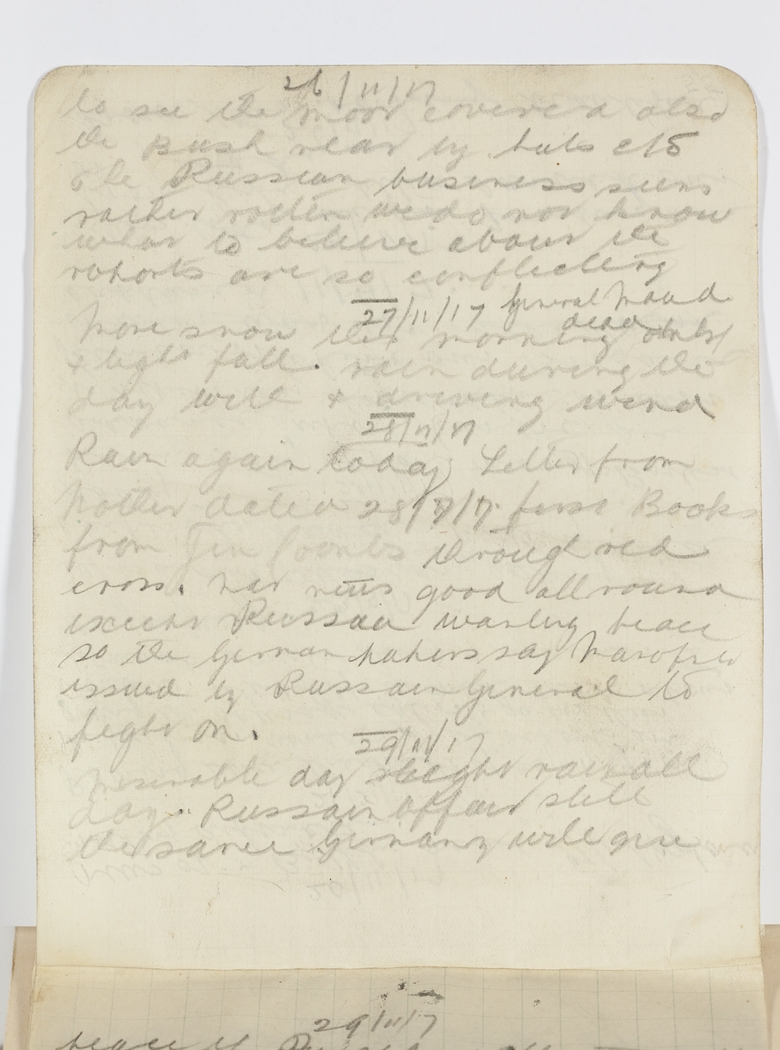 26/11/17
to see the moor covered also
the Bush near by huts etc
The Russian business seems
rather rotten we do not know
what to believe about the
rohorts are so conflecting
27/11/17 General Maud
dead
More snow this morning only
+ light fall. rain during the
day with + driving wind
28/11/17
Rain again today Letter from
Mother dated 28/7/17. first Books
from Jen Coombs through red
cross. War news good all round
except Russia wanting peace
so the German papers say
issued by Russain General to
fight on.
29/11/17
Miserable day slight rain all
day. Russain affair still
the same Germany will give
29/11/17
peace if